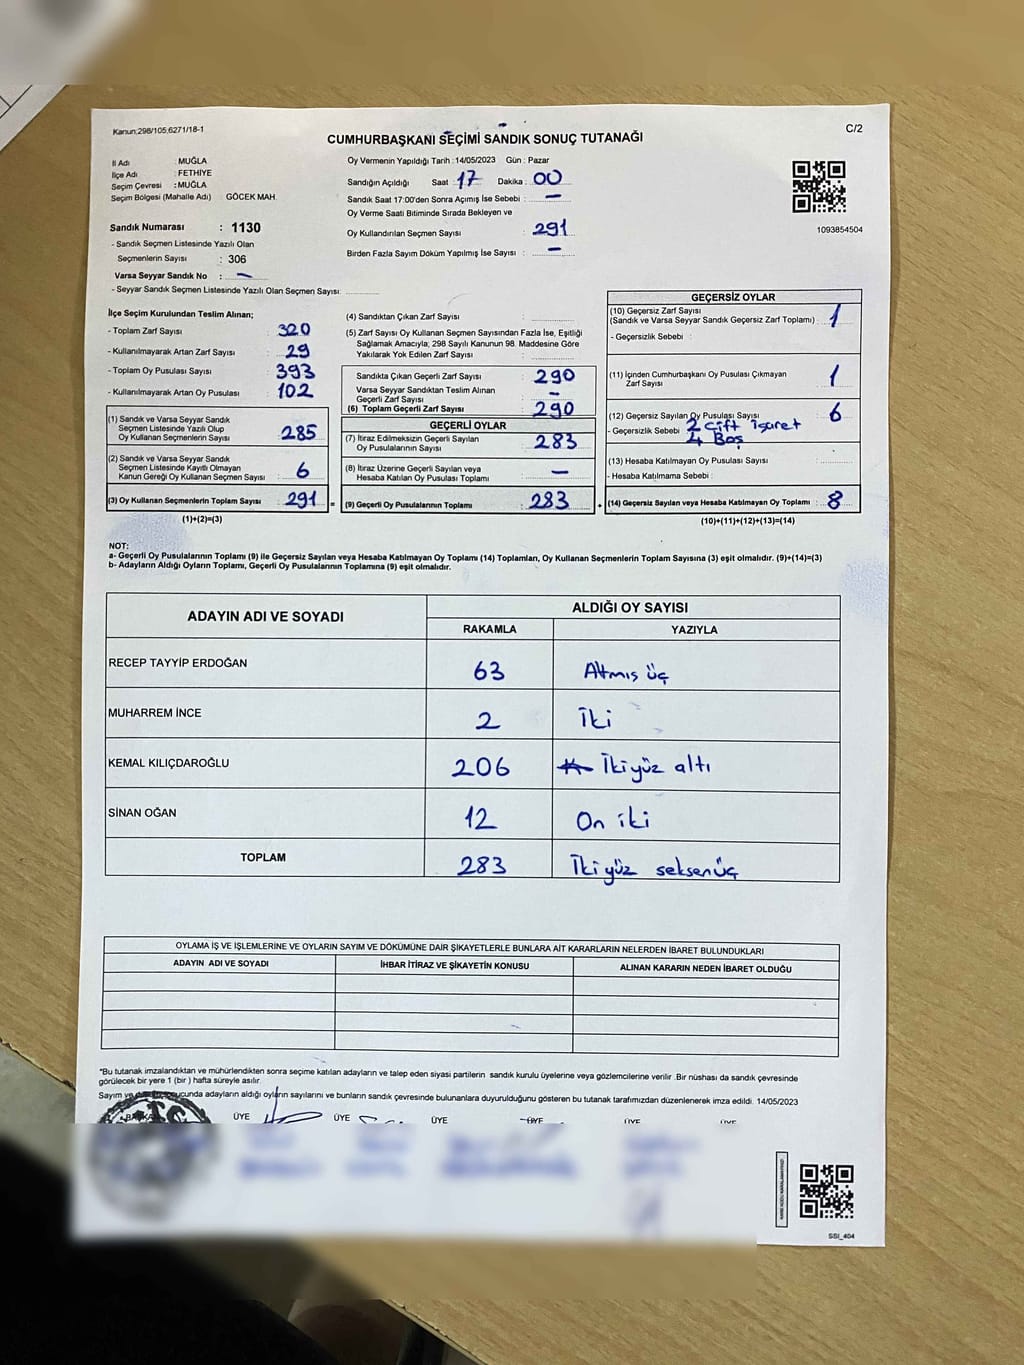 Kanun;298/105,6271/18-1
C/2
CUMHURBAŞKANI SEÇİMİ SANDIK SONUÇ TUTANAĞI
İl Adı : MUĞLA
İlçe Adı : FETHİYE
Seçim Çevresi : MUĞLA
Seçim Bölgesi (Mahalle Adı) : GÖCEK MAH.
Sandık Numarası : 1130
- Sandık Seçmen Listesinde Yazılı Olan
Seçmenlerin Sayısı : 306
Varsa Seyyar Sandık No : —
- Seyyar Sandık Seçmen Listesinde Yazılı Olan Seçmen Sayısı:
Oy Vermenin Yapıldığı Tarih : 14/05/2023 Gün : Pazar
Sandığın Açıldığı Saat : 17 Dakika : 00
Sandık Saat 17:00'den Sonra Açımış İse Sebebi : —
Oy Verme Saati Bitiminde Sırada Bekleyen ve
Oy Kullandırılan Seçmen Sayısı : 291
Birden Fazla Sayım Döküm Yapılmış İse Sayısı : —
1093854504
İlçe Seçim Kurulundan Teslim Alınan;
- Toplam Zarf Sayısı : 320
- Kullanılmayarak Artan Zarf Sayısı : 29
- Toplam Oy Pusulası Sayısı : 393
- Kullanılmayarak Artan Oy Pusulası : 102
(1) Sandık ve Varsa Seyyar Sandık
Seçmen Listesinde Yazılı Olup
Oy Kullanan Seçmenlerin Sayısı : 285
(2) Sandık ve Varsa Seyyar Sandık
Seçmen Listesinde Kayıtlı Olmayan
Kanun Gereği Oy Kullanan Seçmen Sayısı : 6
(3) Oy Kullanan Seçmenlerin Toplam Sayısı : 291
(1)+(2)=(3)
=
(4) Sandıktan Çıkan Zarf Sayısı :
(5) Zarf Sayısı Oy Kullanan Seçmen Sayısından Fazla İse, Eşitliği
Sağlamak Amacıyla; 298 Sayılı Kanunun 98. Maddesine Göre
Yakılarak Yok Edilen Zarf Sayısı :
Sandıkta Çıkan Geçerli Zarf Sayısı : 290
Varsa Seyyar Sandıktan Teslim Alınan
Geçerli Zarf Sayısı : —
(6) Toplam Geçerli Zarf Sayısı : 290
GEÇERLİ OYLAR
(7) İtiraz Edilmeksizin Geçerli Sayılan
Oy Pusulalarının Sayısı : 283
(8) İtiraz Üzerine Geçerli Sayılan veya
Hesaba Katılan Oy Pusulası Toplamı : —
(9) Geçerli Oy Pusulalarının Toplamı : 283
+
GEÇERSİZ OYLAR
(10) Geçersiz Zarf Sayısı
(Sandık ve Varsa Seyyar Sandık Geçersiz Zarf Toplamı) : 1
- Geçersizlik Sebebi :
(11) İçinden Cumhurbaşkanı Oy Pusulası Çıkmayan
Zarf Sayısı : 1
(12) Geçersiz Sayılan Oy Pusulası Sayısı : 6
- Geçersizlik Sebebi : 2 Çift işaret
4 Boş
(13) Hesaba Katılmayan Oy Pusulası Sayısı :
- Hesaba Katılmama Sebebi :
(14) Geçersiz Sayılan veya Hesaba Katılmayan Oy Toplamı : 8
(10)+(11)+(12)+(13)=(14)
NOT:
a- Geçerli Oy Pusulalarının Toplamı (9) ile Geçersiz Sayılan veya Hesaba Katılmayan Oy Toplamı (14) Toplamları, Oy Kullanan Seçmenlerin Toplam Sayısına (3) eşit olmalıdır. (9)+(14)=(3)
b- Adayların Aldığı Oyların Toplamı, Geçerli Oy Pusulalarının Toplamına (9) eşit olmalıdır.
ADAYIN ADI VE SOYADI
ALDIĞI OY SAYISI
RAKAMLA YAZIYLA
RECEP TAYYİP ERDOĞAN 63 Altmış üç
MUHARREM İNCE 2 İki
KEMAL KILIÇDAROĞLU 206 İkiyüz altı
SİNAN OĞAN 12 On iki
TOPLAM 283 İkiyüz seksenüç
OYLAMA İŞ VE İŞLEMLERİNE VE OYLARIN SAYIM VE DÖKÜMÜNE DAİR ŞİKAYETLERLE BUNLARA AİT KARARLARIN NELERDEN İBARET BULUNDUKLARI
ADAYIN ADI VE SOYADI İHBAR İTİRAZ VE ŞİKAYETİN KONUSU ALINAN KARARIN NEDEN İBARET OLDUĞU
*Bu tutanak imzalandıktan ve mühürlendikten sonra seçime katılan adayların ve talep eden siyasi partilerin sandık kurulu üyelerine veya gözlemcilerine verilir .Bir nüshası da sandık çevresinde
görülecek bir yere 1 (bir ) hafta süreyle asılır.
Sayım ve sonucunda adayların aldığı oyların sayılarını ve bunların sandık çevresinde bulunanlara duyurulduğunu gösteren bu tutanak tarafımızdan düzenlenerek imza edildi. 14/05/2023
BAŞKAN ÜYE ÜYE ÜYE ÜYE ÜYE ÜYE
SSI_404